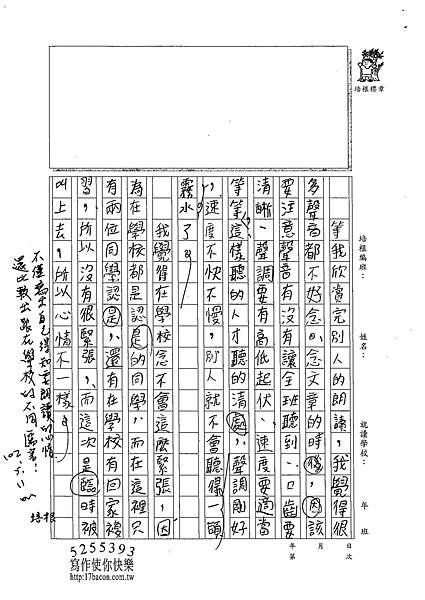 培根標章
培根編班：
姓名：
就讀學校：
年 班
年 月 日
第 次
等我欣賞完別人的朗讀，我覺得很
多聲音都不好念。念文章的時候，因該
要注意聲音有沒有讓全班聽到、口齒要
清晰、聲調要有高低起伏、速度要適當
等等，這樣聽的人才聽的清處，聲調剛好
，速度不快不慢，別人就不會聽得一頭
霧水了。
我覺得在學校念不會這麼緊張，因
為在學校都是認是的同學，而在這裡只
有兩位同學認是，還有在學校有回家複
習，所以沒有很緊張，而這次是臨時被
叫上去，所以心情不一樣。
不僅寫出自己得知要朗讀的心情，
還比較出跟在學校的不同，厲害！
102.5.11
培根
5255393
寫作使你快樂
http://17bacon.com.tw/